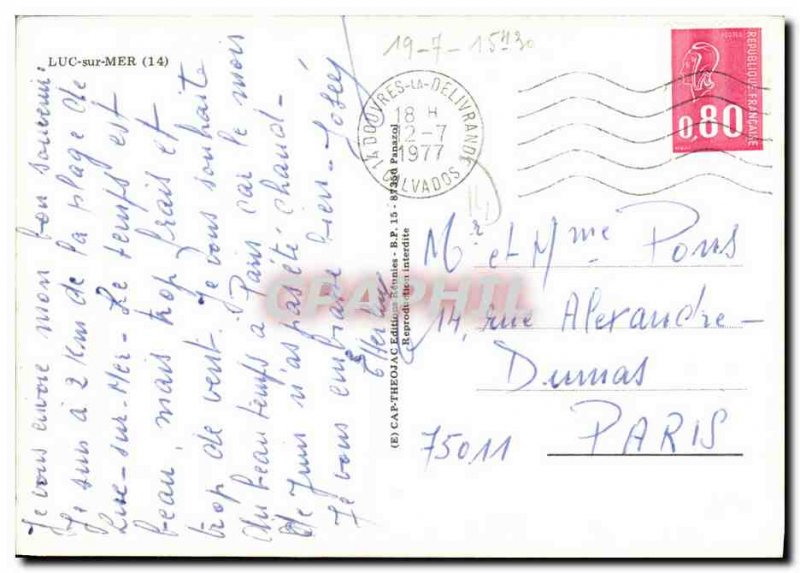 LUC-sur-MER (14)
Je vous envoie mon bon souvenir.
Je suis à 2 Km de la plage de
Luc-sur-Mer. Le temps est
beau, mais trop frais et
trop de vent. Je vous souhaite
du beau temps à Paris car le mois
de Juin n'a pas été chaud-
Je vous embrasse bien-
19-7-15H30
LA DOUVRES-LA-DELIVRANDE
18 H
12-7
1977
CALVADOS
REPUBLIQUE FRANÇAISE
0,80
(E) CAP-THEOJAC Editions Réunies - B.P. 15 - 87350 Panazol
Reproduction interdite
CPAPHIL
Mr et Mme Pons
14, rue Alexandre-
Dumas
75011 PARIS